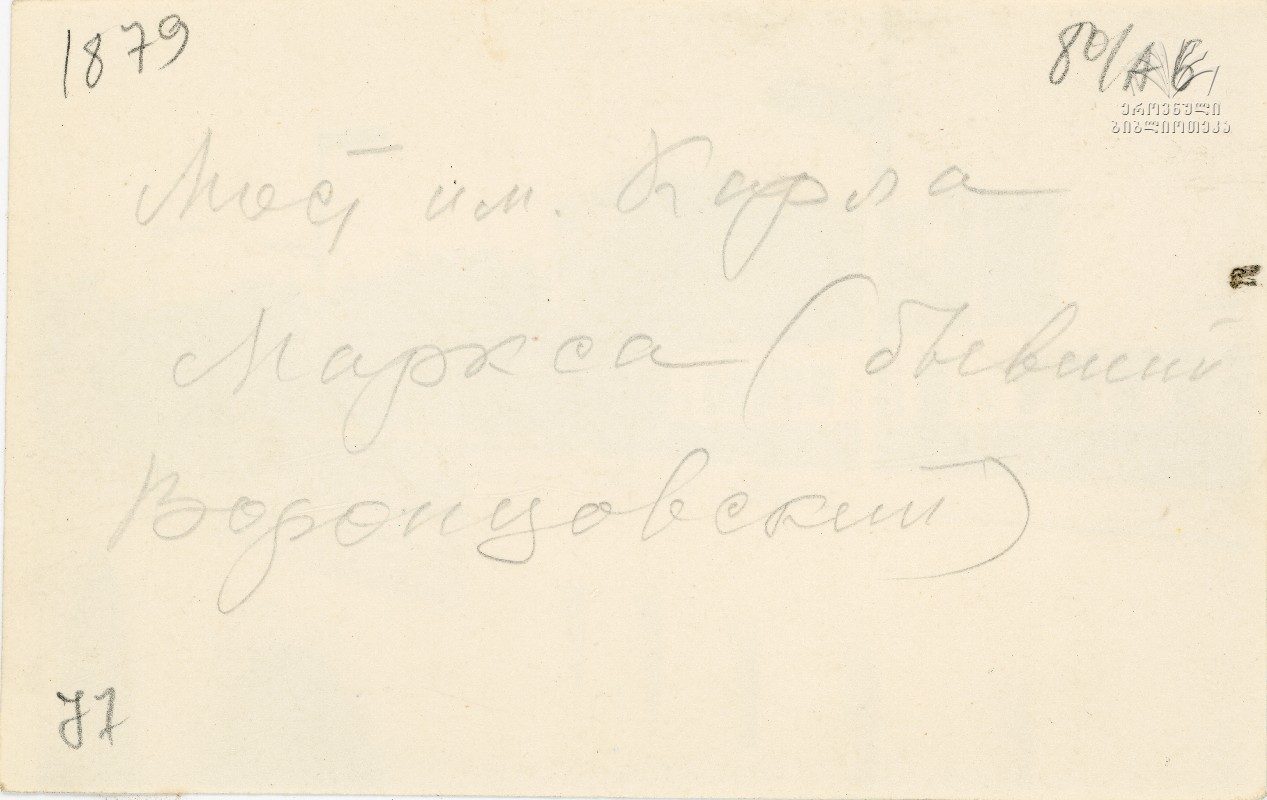 1879
80/АБ
ეროვნული
ბიბლიოთეკა
Мост им. Карла
Маркса (бывший
Воронцовский)